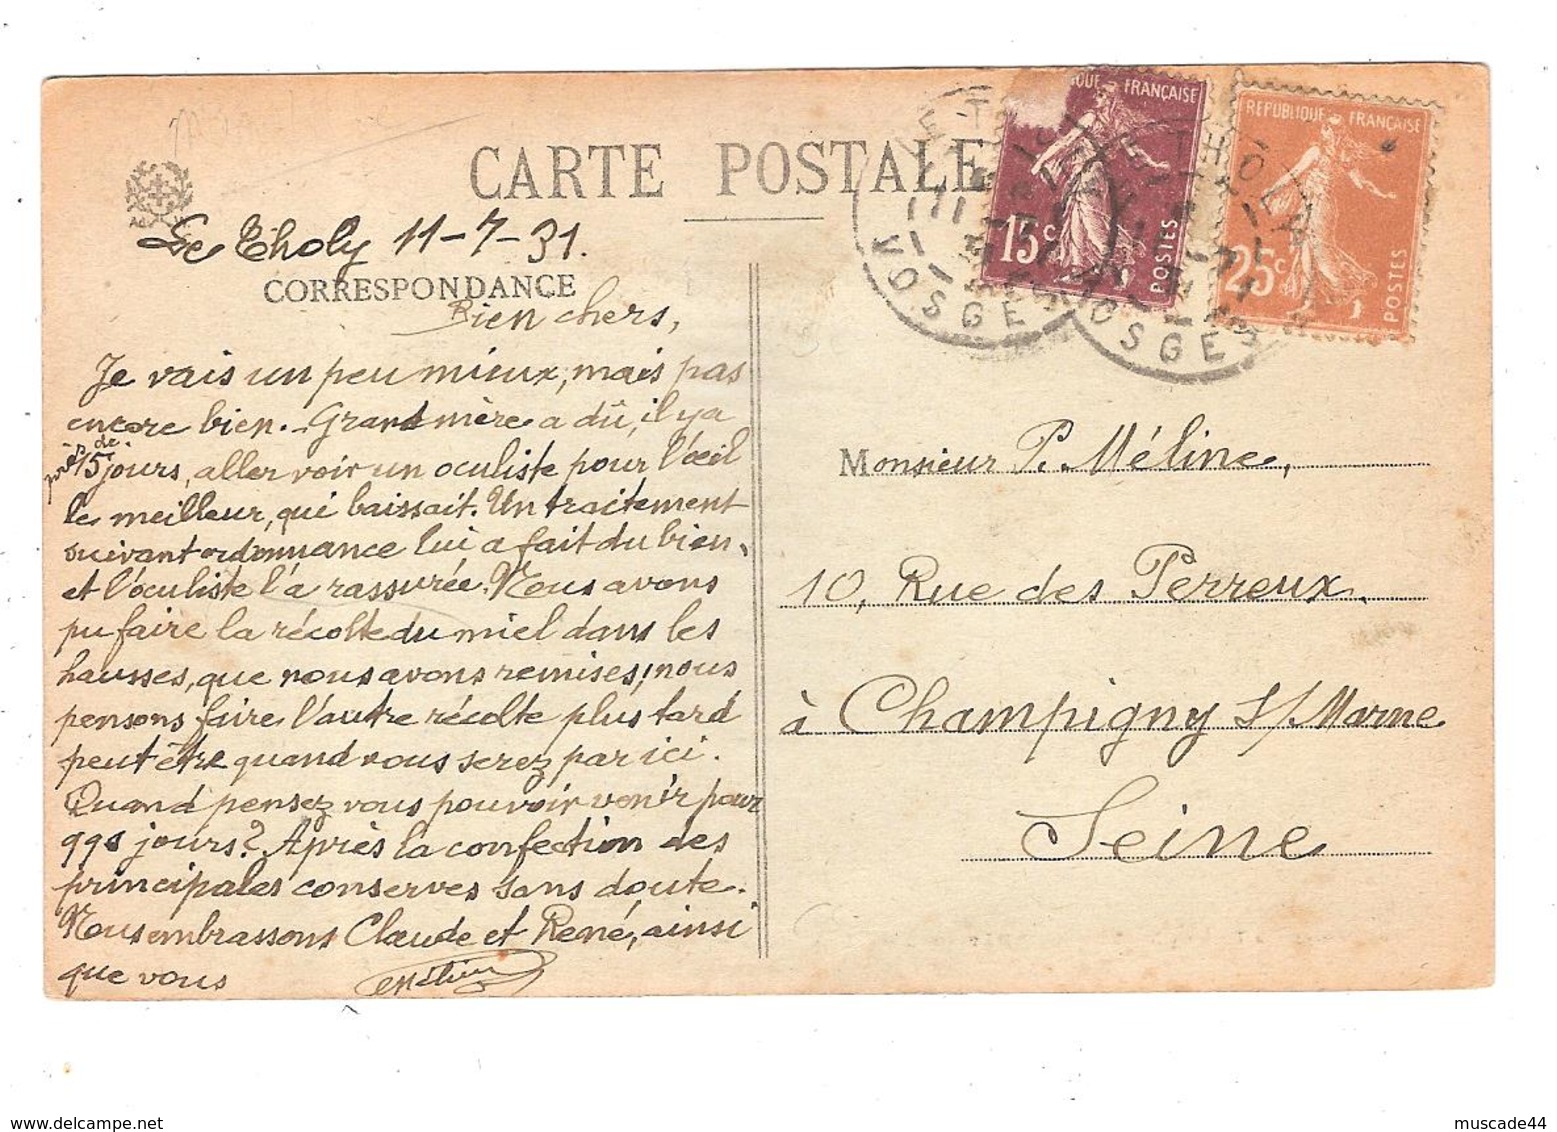 CARTE POSTALE
Le Tholy 11-7-31.
CORRESPONDANCE
Bien chers,
Je vais un peu mieux, mais pas
encore bien. - Grand mère a dû, il y a
près de
15 jours, aller voir un oculiste pour l'œil
le meilleur, qui baissait. Un traitement
suivant ordonnance lui a fait du bien,
et l'oculiste l'a rassurée. Nous avons
pu faire la récolte du miel dans les
hausses, que nous avons remises; nous
pensons faire l'autre récolte plus tard
peut être quand vous serez par ici.
Quand pensez vous pouvoir venir pour
qqs jours? Après la confection des
principales conserves sans doute.
Nous embrassons Claude et René, ainsi
que vous
Méline
QUE FRANÇAISE
15c
POSTES
REPUBLIQUE FRANÇAISE
25c
POSTES
LE THOLY
VOSGES
LE THOLY
VOSGES
Monsieur P. Méline,
10, Rue des Perreux,
à Champigny s/ Marne
Seine
muscade44